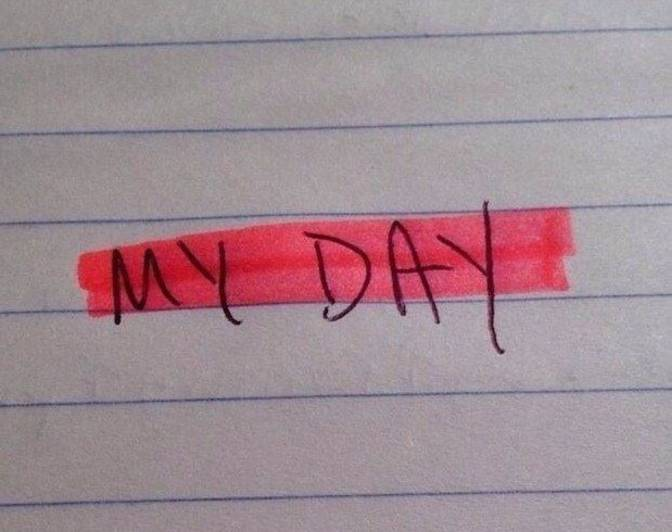 MY DAY